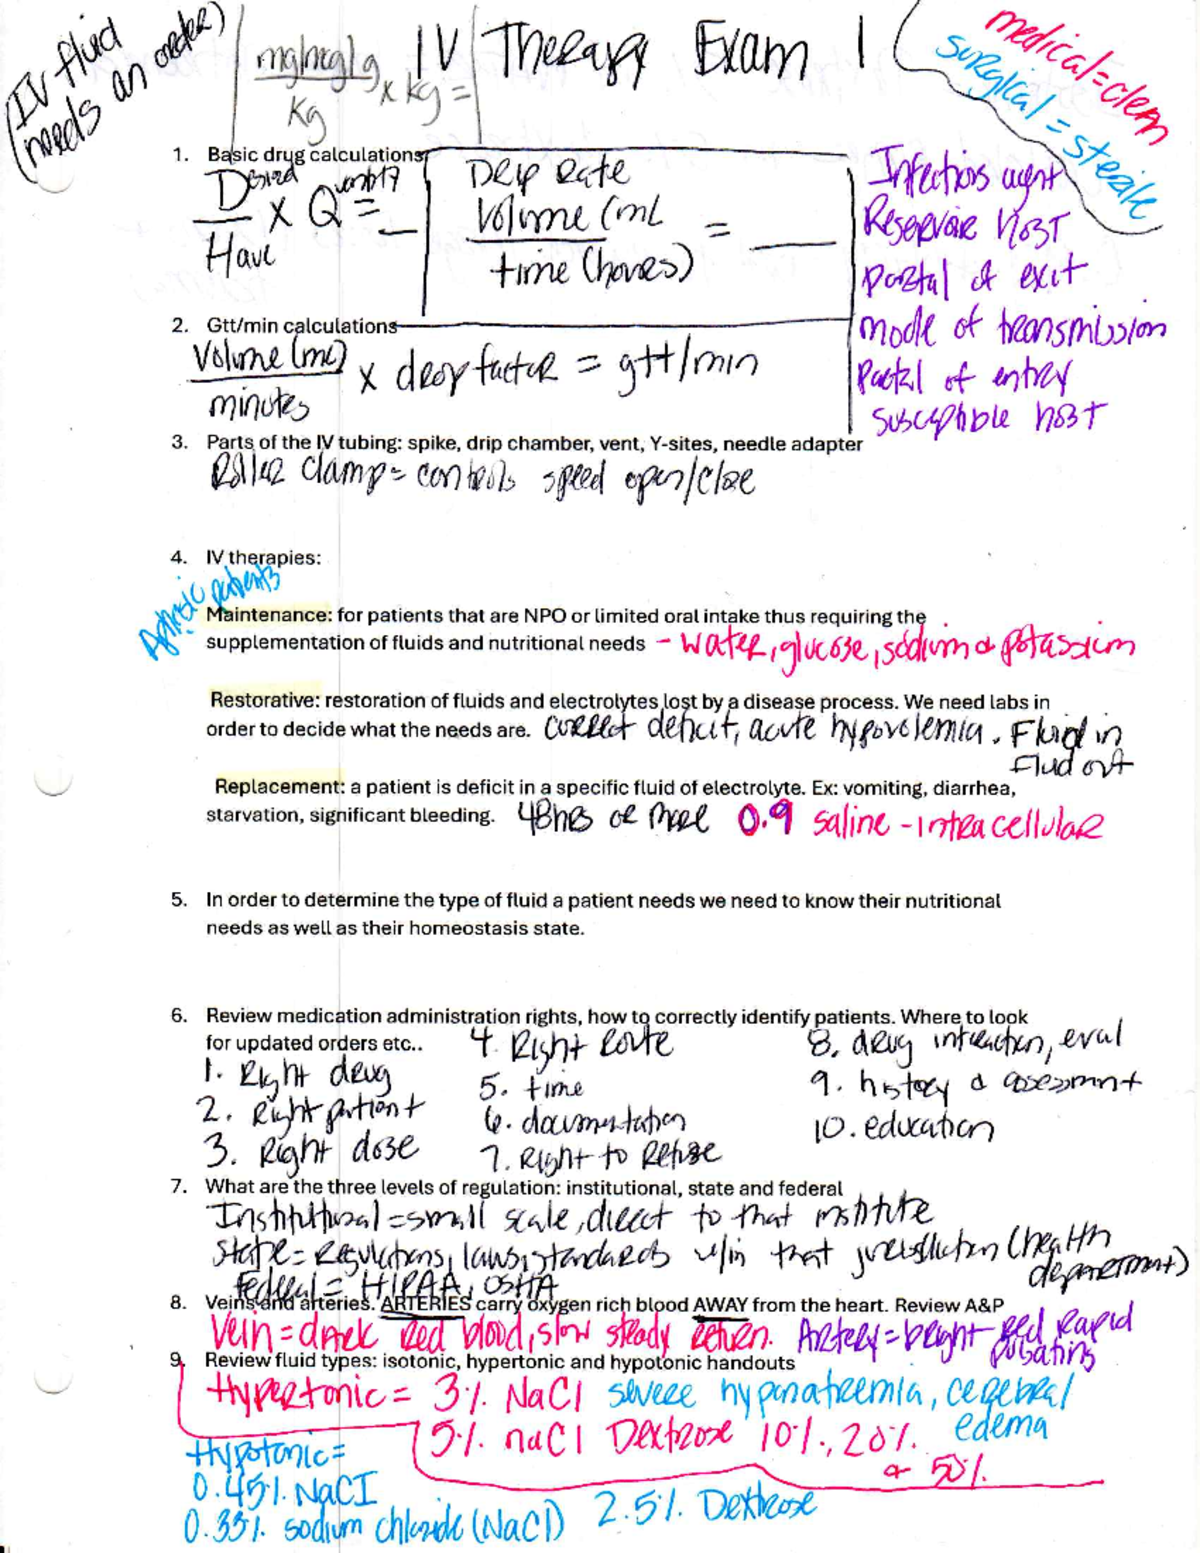 (IV fluid
needs an order)
mg/mcg/g
Kg
x kg =
IV Therapy Exam 1
medical=clean
surgical = sterile
1. Basic drug calculations
Desired
Have
x Quantity = __
Drip Rate
Volume (mL
time (hours)
= ____
Infectious agent
Reservoir host
portal of exit
mode of transmission
Portal of entry
susceptible host
2. Gtt/min calculations
Volume (mL)
minutes
x drop factor = gtt/min
3. Parts of the IV tubing: spike, drip chamber, vent, Y-sites, needle adapter
Roller clamp = controls speed open/close
4. IV therapies:
patients
Maintenance: for patients that are NPO or limited oral intake thus requiring the
supplementation of fluids and nutritional needs - water, glucose, sodium & potassium
Restorative: restoration of fluids and electrolytes lost by a disease process. We need labs in
order to decide what the needs are. correct deficit, acute hypovolemia. Fluid in
Fluid out
Replacement: a patient is deficit in a specific fluid of electrolyte. Ex: vomiting, diarrhea,
starvation, significant bleeding. 48hrs or more 0.9 saline - intracellular
5. In order to determine the type of fluid a patient needs we need to know their nutritional
needs as well as their homeostasis state.
6. Review medication administration rights, how to correctly identify patients. Where to look
for updated orders etc..
1. Right drug
2. Right patient
3. Right dose
4. Right Route
5. time
6. documentation
7. Right to Refuse
8. drug interaction, eval
9. history & assessment
10. education
7. What are the three levels of regulation: institutional, state and federal
Institutional = small scale, direct to that institute
State = Regulations, laws, standards w/in that jurisdiction (health
department)
Federal = HIPAA, OSHA
8. Veins and arteries. ARTERIES carry oxygen rich blood AWAY from the heart. Review A&P
Vein = dark red blood, slow steady return. Artery = bright red rapid
pulsating
9. Review fluid types: isotonic, hypertonic and hypotonic handouts
Hypertonic = 3% NaCl severe hyponatremia, cerebral
edema
5% naCl Dextrose 10%, 20%
& 50%
Hypotonic =
0.45% NaCl
0.33% sodium chloride (NaCl) 2.5% Dextrose